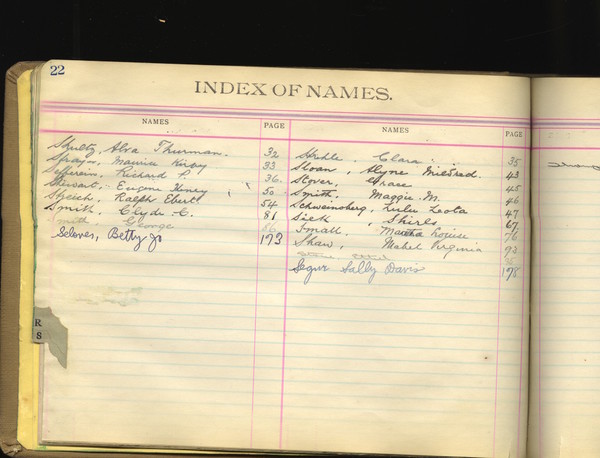 22
INDEX OF NAMES.
NAMES PAGE
Shultz, Alva Thurman. 32
Sprayer, Maurice Kirby 33
Richard P. 36.
Stewart, Eugene Henry 50
Ralph Ebert 54
Smith, Clyde C. 81
Smith George 86
Betty Jo 173
NAMES PAGE
Clara 35
Sloan, Alyne Mildred. 43
Stover, Grace 45
Smith, Maggie M. 46
Schweinsberg, Lulu Leota 47
Sieh, Shirle 67
Small, Martha Louise 76
Shaw, Mabel Virginia 93
35
Segur Sally Davis 178
R
S